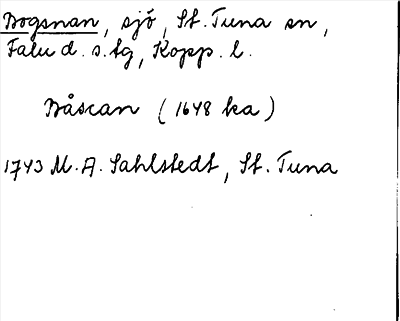 Bogsnan, sjö, St. Tuna sn,
Falu d. s. tg, Kopp. l.
Båscan (1648 ka)
1743 M. A. Sahlstedt, St. Tuna